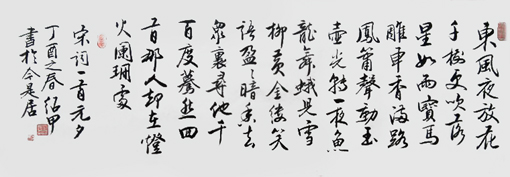 東風夜放花
千樹更吹落
星如雨寶馬
雕車香滿路
鳳簫聲動玉
壺光轉一夜魚
龍舞蛾兒雪
柳黃金縷笑
語盈〻暗香去
衆裏尋他千
百度驀然回
首那人卻在燈
火闌珊處
宋詞一首元夕
丁酉之春紹甲
書於今是居